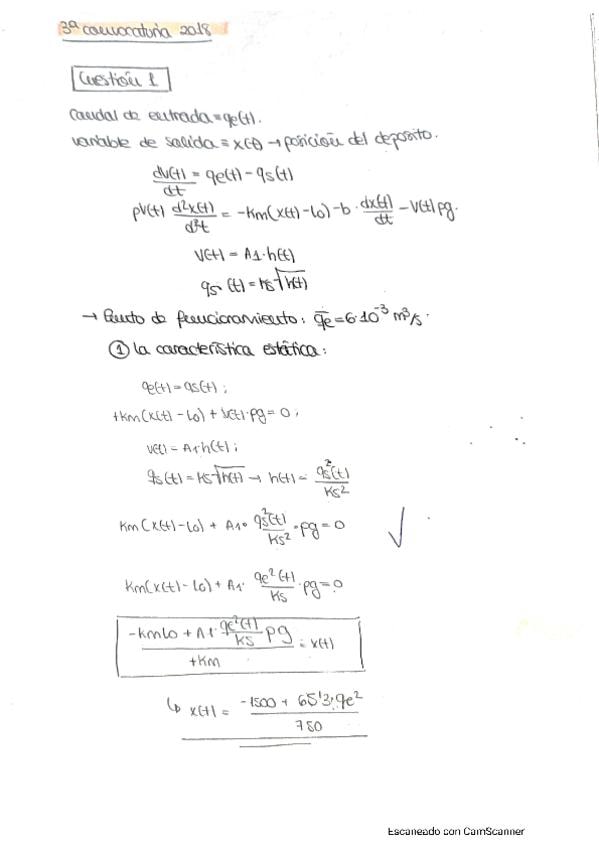 3ª convocatoria 2018
Cuestión 1
Caudal de entrada = qe(t).
variable de salida = x(t) → posición del deposito.
dV(t)/dt = qe(t) - qs(t)
ρV(t) d²x(t)/d²t = -Km(x(t)-lo) - b · dx(t)/dt - V(t)ρg.
V(t) = A1·h(t)
qs(t) = Ks√h(t)
→ Punto de funcionamiento: q̄e = 6·10⁻³ m³/s.
① la característica estática:
qe(t) = qs(t);
+Km(x(t) - lo) + V(t)·ρg = 0;
V(t) = A1h(t);
qs(t) = Ks√h(t) → h(t) = qs²(t)/Ks²
Km(x(t) - lo) + A1· qs²(t)/Ks² · ρg = 0
Km(x(t) - lo) + A1· qe²(t)/Ks · ρg = 0
-Kmlo + A1· qe²(t)/Ks ρg / +Km = x(t)
↳ x(t) = -1500 + 651'3·qe² / 750
Escaneado con CamScanner